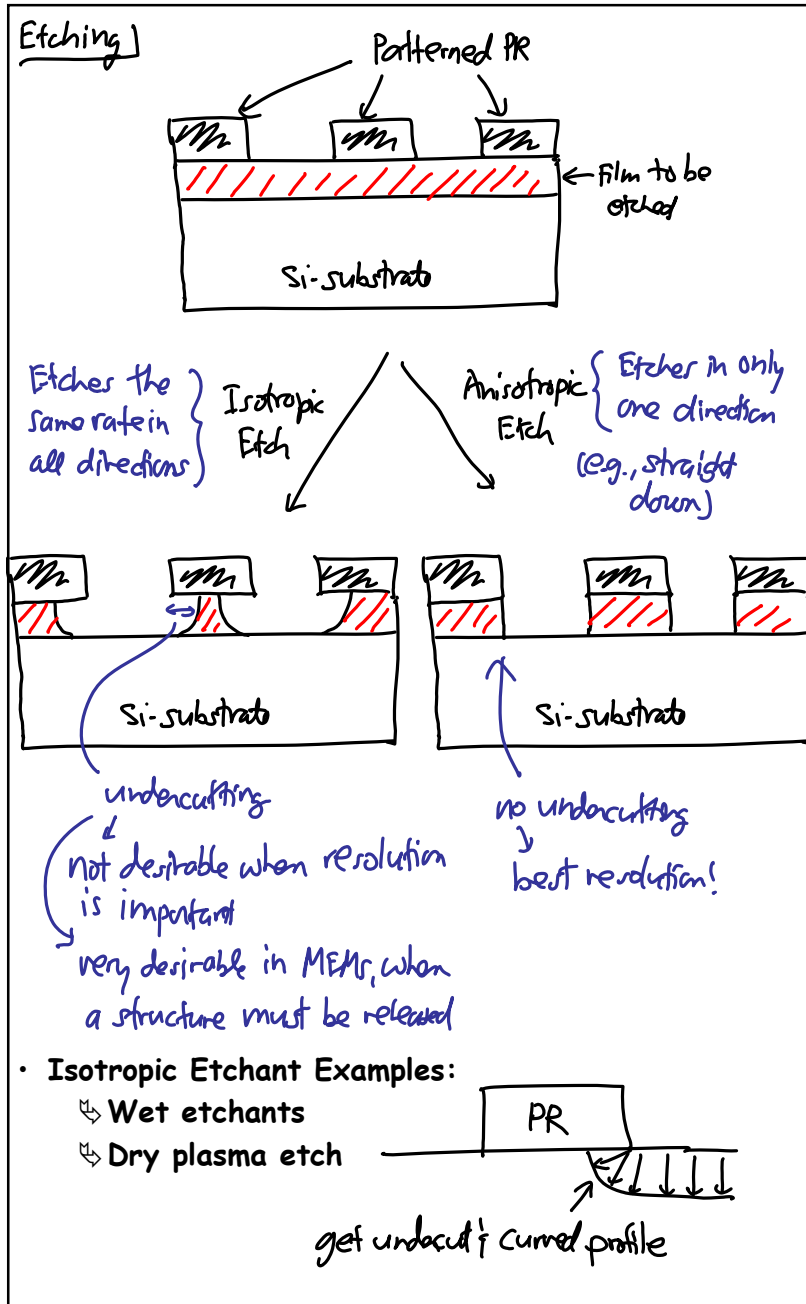 Etching
Patterned PR
Film to be
etched
Si-substrate
Etches the
same rate in
all directions
Isotropic
Etch
Anisotropic
Etch
Etches in only
one direction
(e.g., straight
down)
Si-substrate
Si-substrate
undercutting
not desirable when resolution
is important
very desirable in MEMs, when
a structure must be released
no undercutting
best resolution!
• Isotropic Etchant Examples:
↳ Wet etchants
↳ Dry plasma etch
PR
get undercut & curved profile